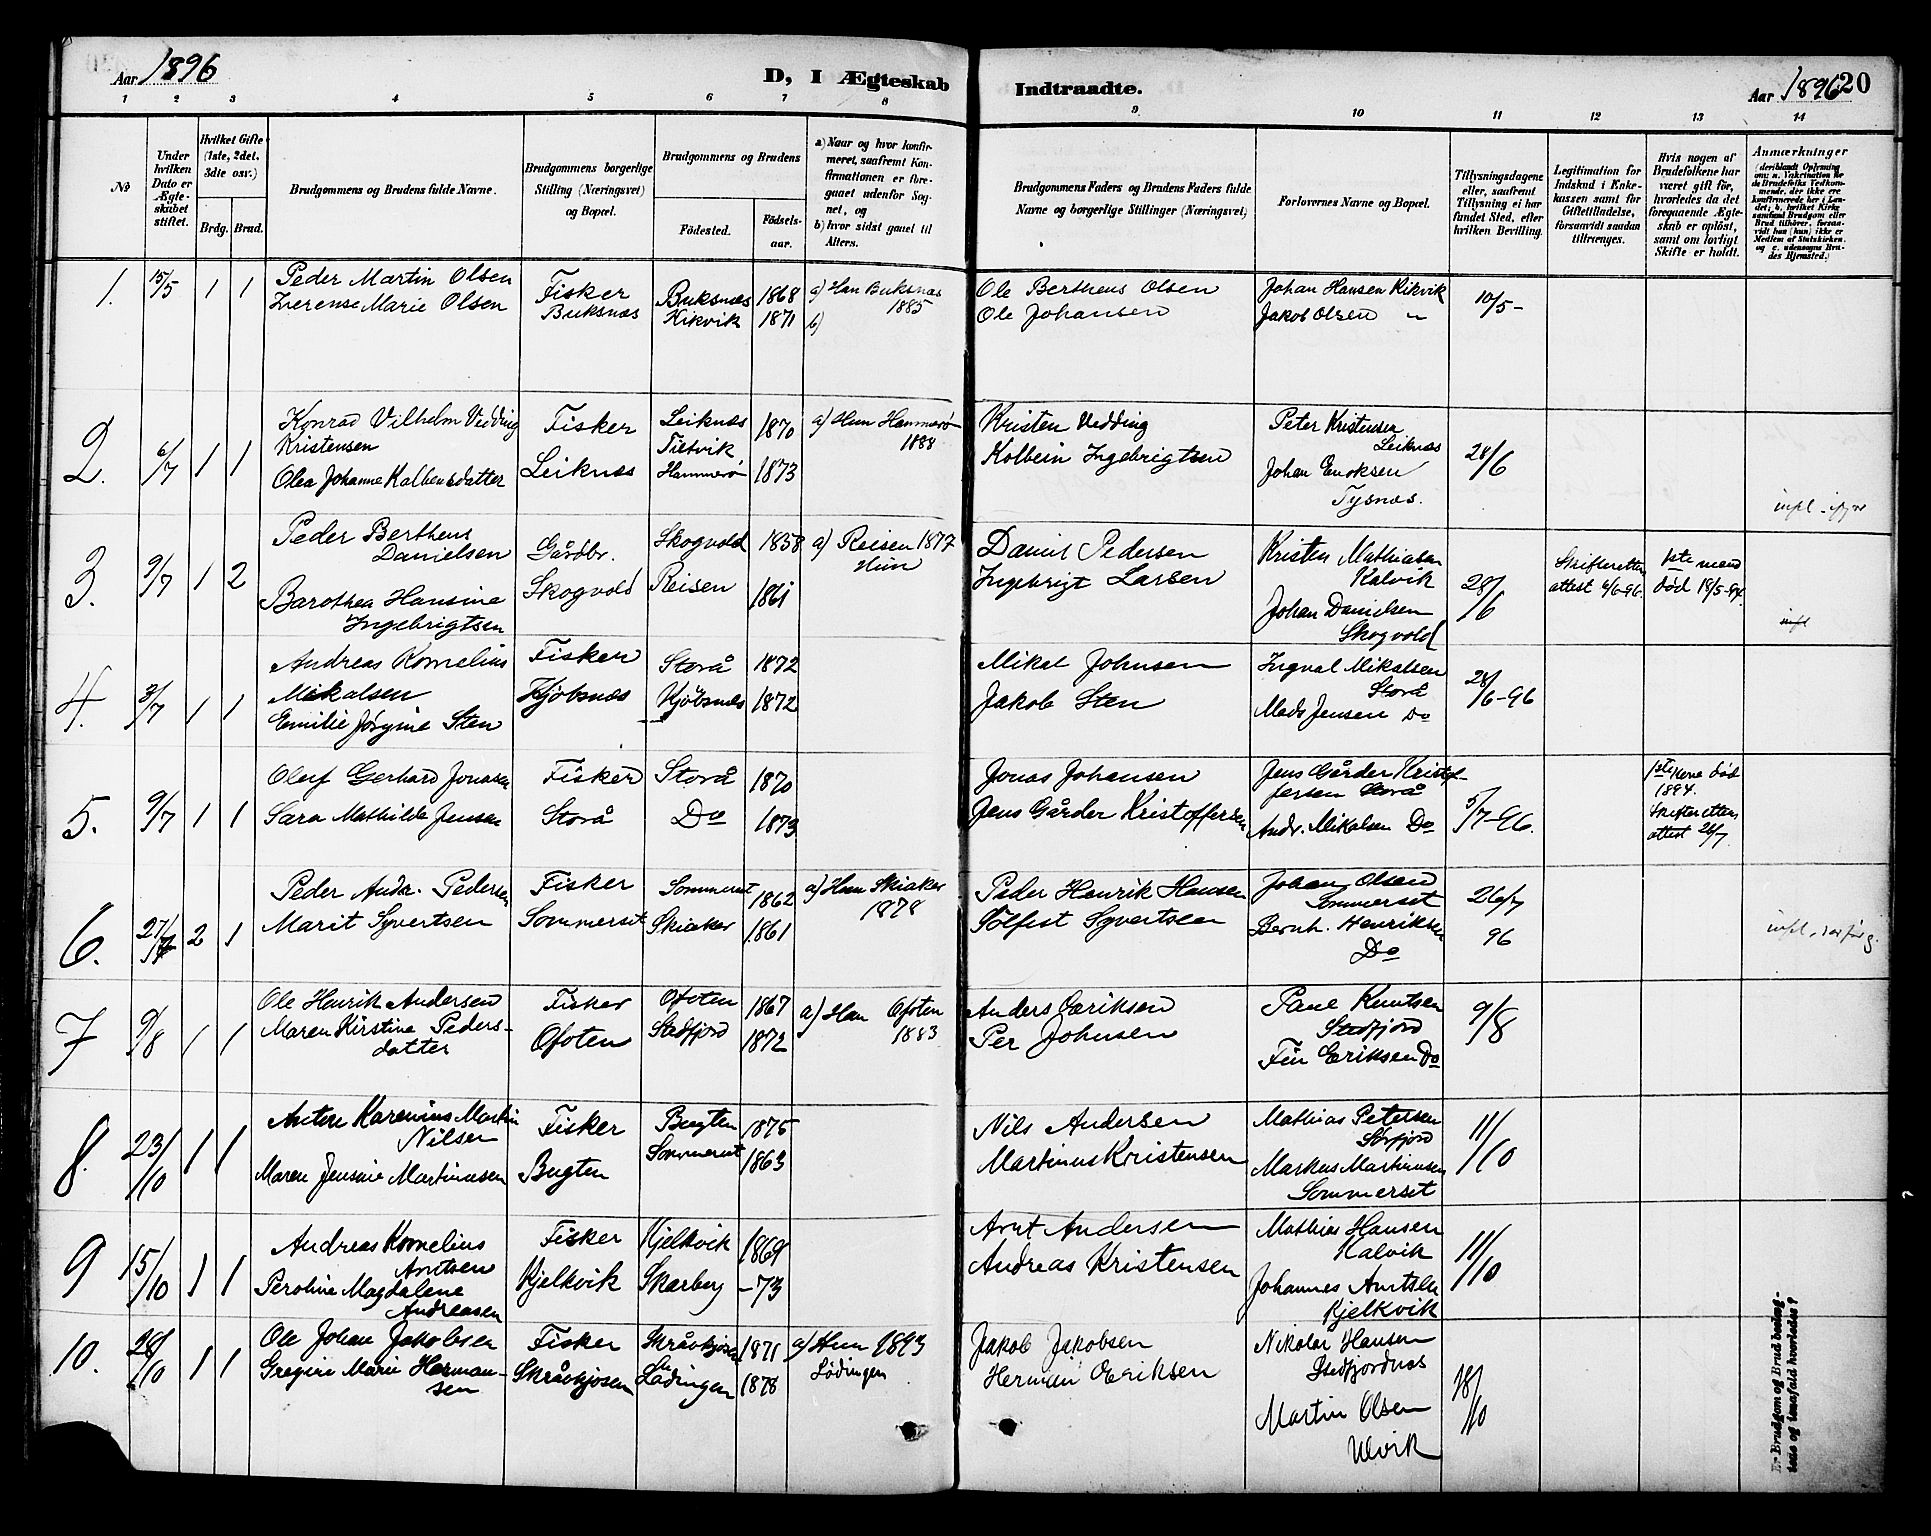 Aar 1896
D, I Ægteskab Indtraadte.
Aar 1896
20
1 2 3 4 5 6 7 8 9 10 11 12 13 14
No
Under
hvilken
Dato er
Ægte-
skabet
stiftet.
Hvilket Gifte
(1ste, 2det,
3die osv.)
Brdg. Brud.
Brudgommens og Brudens fulde Navne.
Brudgommens borgerlige
Stilling (Næringsvei)
og Bopæl.
Brudgommens og Brudens
Fødested.
Fødsels-
aar.
a) Naar og hvor konfir-
meret, saafremt Kon-
firmationen er fore-
gaaet udenfor Sog-
net, og
b) hvor sidst gaaet til
Alters.
Brudgommens Faders og Brudens Faders fulde
Navne og borgerlige Stillinger (Næringsvei)
Forlovernes Navne og Bopæl.
Tillysningsdagene
eller, saafremt
Tillysning ei har
fundet Sted, efter
hvilken Bevilling.
Legitimation for
Indskud i Enke-
kassen samt for
Giftetilladelse,
forsaavidt saadan
tiltrænges.
Hvis nogen af
Brudefolkene har
været gift før,
hvorledes da det
foregaaende Ægte-
skab er opløst,
samt om lovligt
Skifte er holdt.
Anmærkninger
(deriblandt Oplysning
om: a. Vakcination for
de Brudefolks Vedkom-
mende, der ikke ere
konfirmerede her i Lan-
det; b. hvilket Kirke-
samfund Brudgom eller
Brud tilhører, forsaa-
vidt han (hun) ikke er
Medlem af Statskirken,
og c. udensogns Bru-
des Hjemsted.)
1. 15/5 1 1
Peder Martin Olsen
Marie Olsen
Fisker
Buksnæs
Buksnæs 1868
Kikvik 1871
a) Han Buksnæs
1885
b)
Ole Bertheus Olsen
Ole Johansen
Johan Hansen Kikvik
Jakob Olsen "
10/5-
2. 6/7 1 1
Konrad Vilhelm Vedding
Kristensen
Olea Johanne Kolbensdatter
Fisker
Leiknæs
Leiknæs 1870
Tiltvik
Hammerø 1873
a) Hun Hammerø
1888
Kristen Vedding
Kolbein Ingebrigtsen
Peter Kristensen
Leiknæs
Johan Enoksen
Tysnæs.
28/6
3. 9/7 1 2
Peder Bertheus
Danielsen
Barothea Hansine
Ingebrigtsen
Gårdbr.
Skogvold
Skogvold 1858
Reisen 1861
a) Reisen 1877
Hun
Daniel Pedersen
Ingebrigt Larsen
Kristen Mathiasen
Kalvik
Johan Danielsen
Skogvold
28/6
Skifteretten
attest 4/6-96.
1ste mand
død 18/5-94.
4. 3/7 1 1
Andreas Kornelius
Mikalsen
Emilie Jørgine Sten
Fisker
Kjøbsnæs
Storå 1872
Kjøbsnæs 1872
Mikal Johnsen
Jakob Sten
Ingval Mikalsen
Storå
Mads Jensen Do
28/6-96
5. 9/7 1 1
Oluf Gerhard Jonassen
Sara Mathilde Jensen
Fisker
Storå
Storå 1870
Do 1873
Jonas Johansen
Jens Gårder Kristoffersen
Jens Gårder Kristof-
fersen Storå
Andr. Mikalsen Do
5/7-96.
1ste Kone død
1894.
Skifteretten
attest 26/7
6. 27/7 2 1
Peder Andr. Pedersen
Marit Syvertsen
Fisker
Sommerset
Sommerset 1862
Skiaker 1861
a) Hun Skiaker
1878
Peder Henrik Hansen
Tolfest Syvertsen
Johan Olsen
Sommerset
Bernh. Henriksen
Do
26/7
96
7 9/8 1 1
Ole Henrik Andersen
Maren Kirstine Peders-
datter
Fisker
Ofoten
Ofoten 1867
Stedfjord 1872
a) Han Ofoten
1883
Anders Eriksen
Per Johnsen
Paul Knutsen
Stedfjord
Fin Eriksen Do
9/8
8. 23/10 1 1
Karenius Martin
Nilsen
Maren Jensine Martinusen
Fisker
Bugten
Bugten 1875
Sommerset 1863
Nils Andersen
Martinus Kristensen
Mathias Petersen
Storfjord
Markus Martinusen
Sommerset
11/10
9 15/10 1 1
Andreas Kornelius
Arntsen
Peroline Magdalene
Andreasen
Fisker
Kjelkvik
Kjelkvik 1869
Skarberg -73
Arnt Andersen
Andreas Kristensen
Mathias Hansen
Kalvik
Johannes Arntsen
Kjelkvik
11/10
10. 28/10 1 1
Ole Johan Jakobsen
Gregine Marie Herman-
sen
Fisker
Skråvkjosen
Skråvkjosen 1871
Lødingen 1878
a) Hun 1893
Lødingen
Jakob Jakobsen
Herman Eriksen
Nikolai Hansen
Stedfjordnæs
Martin Olsen
Ulvik
18/10
Er Brudgom og Brud beslæg-
tede og i saafald hvorledes?